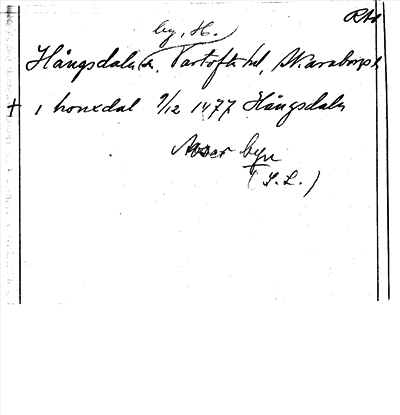 RAä
by, H.
Hångsdala sn, Vartofta hd, Skaraborgs l.
+ i honxdal 9/12 1477 Hångsdala
Avser byn
(S.L.)